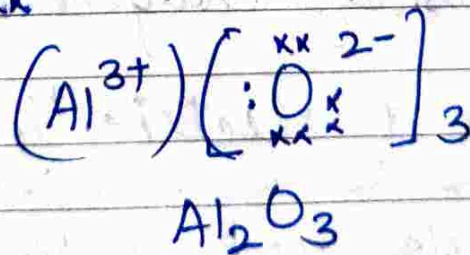 (Al³⁺) [:O:²⁻]₃
Al₂O₃